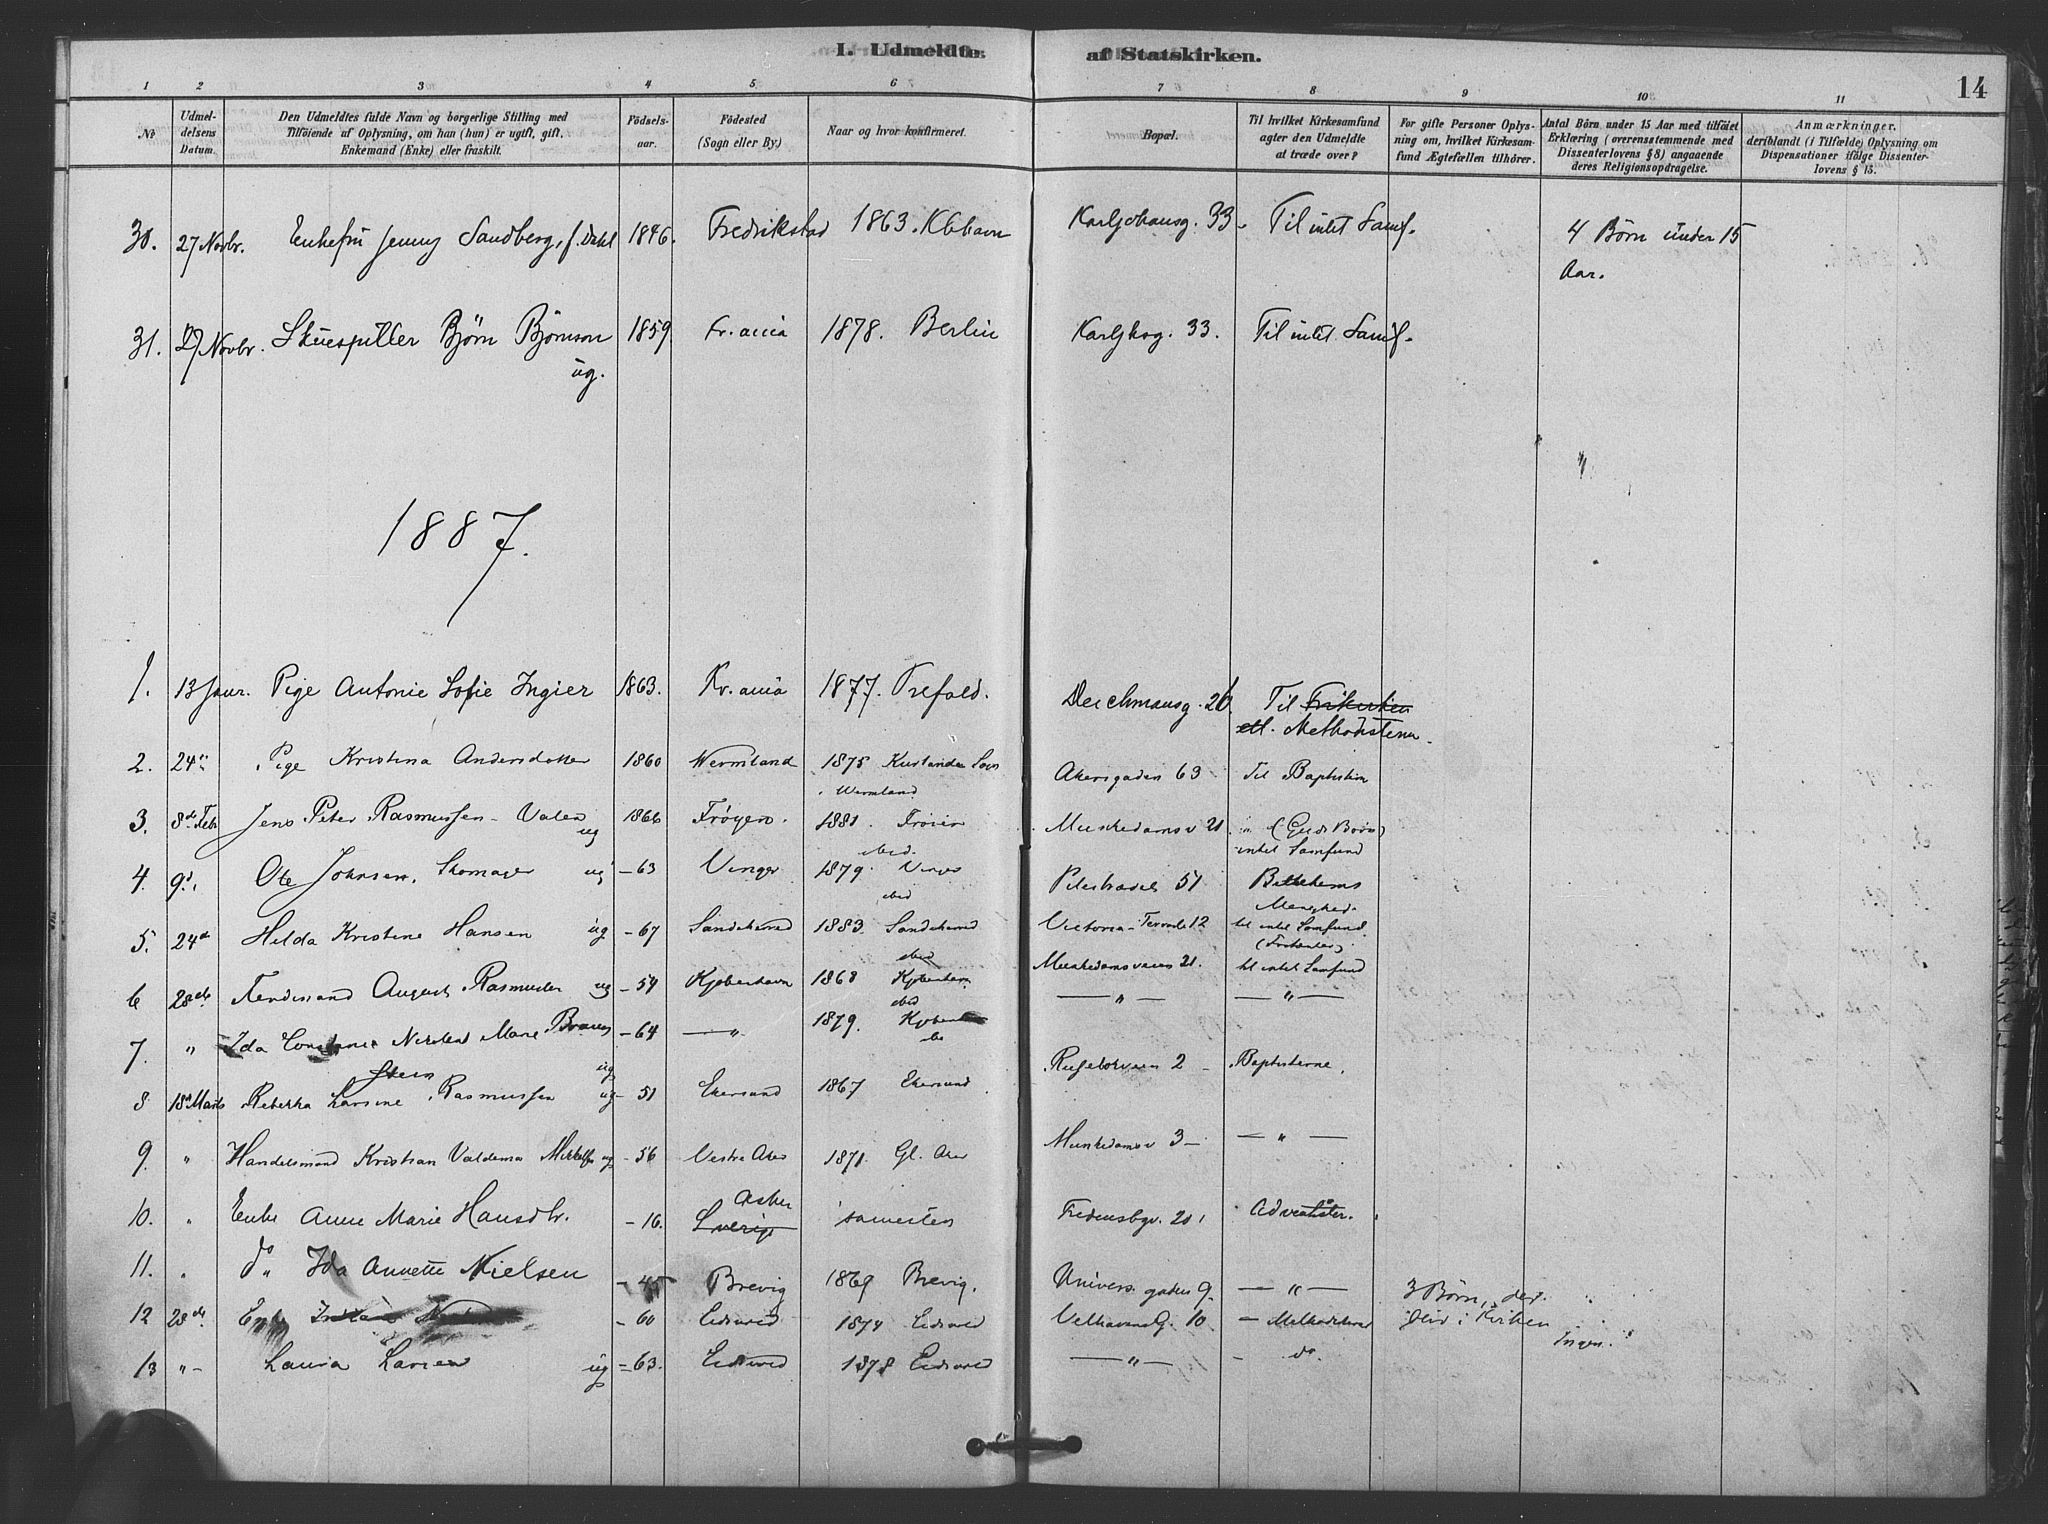 I. Udmeldte af Statskirken.
14
1 2 3 4 5 6 7 8 9 10 11
No
Udmel-
delsens
Datum.
Den Udmeldtes fulde Navn og borgerlige Stilling med
Tilföiende af Oplysning, om han (hun) er ugift, gift,
Enkemand (Enke) eller fraskilt.
Födsels-
aar.
Födested
(Sogn eller By)
Naar og hvor konfirmeret.
Bopæl.
Til hvilket Kirkesamfund
agter den Udmeldte
at træde over?
For gifte Personer Oplys-
ning om, hvilket Kirkesam-
fund Ægtefællen tilhörer.
Antal Börn under 15 Aar med tilföiet
Erklæring (overensstemmende med
Dissenterlovens § 8) angaaende
deres Religionsopdragelse.
Anmærkninger,
deriblandt (i Tilfælde) Oplysning om
Dispensationer ifölge Dissenter-
lovens § 15.
30. 27 Novbr. Enkefru Jenny Sandberg, f. Dahl 1846. Fredrikstad 1863. Kbhavn Karljohansg. 33. Til intet Samf. 4 Børn under 15
Aar.
31. 27 Novbr. Skuespiller Bjørn Bjørnson 1859. Kr.ania 1878. Berlin Karljhsg. 33. Til intet Samf.
ug.
1887.
1. 13 Janr. Pige Antonie Sofie Ingier 1863. Kr.ania 1877. Trefold. Deichmansg. 26 Til Frikirken
etl. Methodisterne
2. 24 Pige Kristina Andersdotter 1860 Wermland 1875 Akersgaden 63 Til Baptisten
Wermland
3. 8de Febr Jens Peter Rasmussen-Valen 1866 Frøyen. 1881. Munkedamsv 21 (Guds Børn)
ug
intet Samfund
4. 9d. Ole Johnsen, Skomager ug - 63 Vinger 1879. Vinger Pilestrædet 51 Bethlehems
Menighed
5. 24d Hilda Kristine Hansen ug - 67 Sandeherred 1883. Sandeherred Victoria-Terrasse 12 til intet Samfund
6 28de Ferdinand August Rasmussen ug - 54 Kjøbenhavn 1868 Kjøbenhavn Munkedamsveien 21. til intet Samfund
7. " Ida Marie - 64 — " 1879. — " — — " —
ug
8 18d Marts Rebekka Larsine Rasmussen ug - 51 Ekersund 1867 Ekersund 2 - Baptisterne.
9. " Handelsmand Kristian Valdemar ug - 56 Vestre Aker 1871. Gl. Aker Munkedamsv 3 — — " —
10. " Enke Anne Marie Hansdtr. - 16. Asker
Sverige
Fredensbgv. 20. Adventister.
11. " do. Ida Annette Nielsen - 45 Brevig 1869 Brevig. Univers.gaden 9. — " — 3 Børn, der
12 28de Enke - 60 Eidsvold 1874 Eidsvold Velhavens G. 10 — Methodisterne i Kirken
Ingen.
13 " - Laura Larsen ug - 63. Eidsvold 1878 Eidsvold — " — - do.